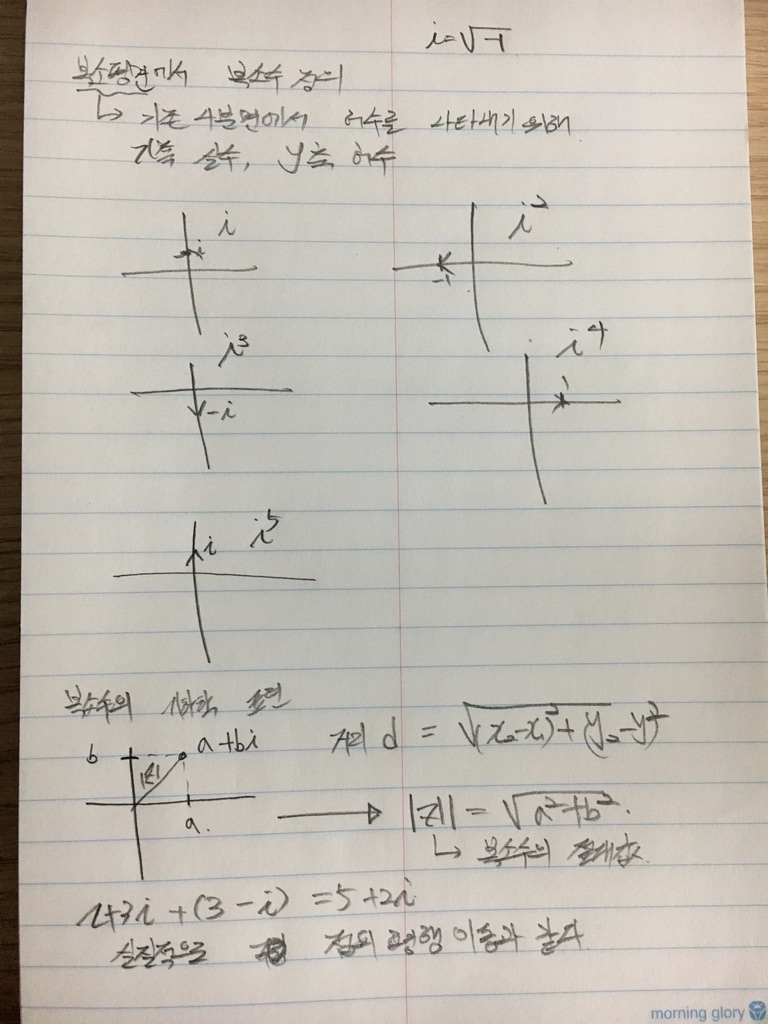 i=√-1
복소평면에서 복소수 정의
↳ 기존 4분면에서 허수를 나타내기 위해
x축 실수, y축 허수
i
i
i²
-1
i³
-i
i⁴
1
i⁵
i
복소수의 기하학 표현
b
a+bi
|z|
a.
거리 d = √(x₂-x₁)²+(y₂-y)²
|z| = √a²+b².
↳ 복소수의 절대값.
+3i +(3-i) =5+2i
실질적으로 점의 평행이동과 같다
morning glory